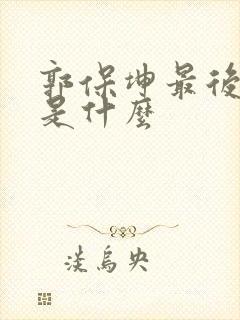 郭保坤最後
是什麼
淡烏央